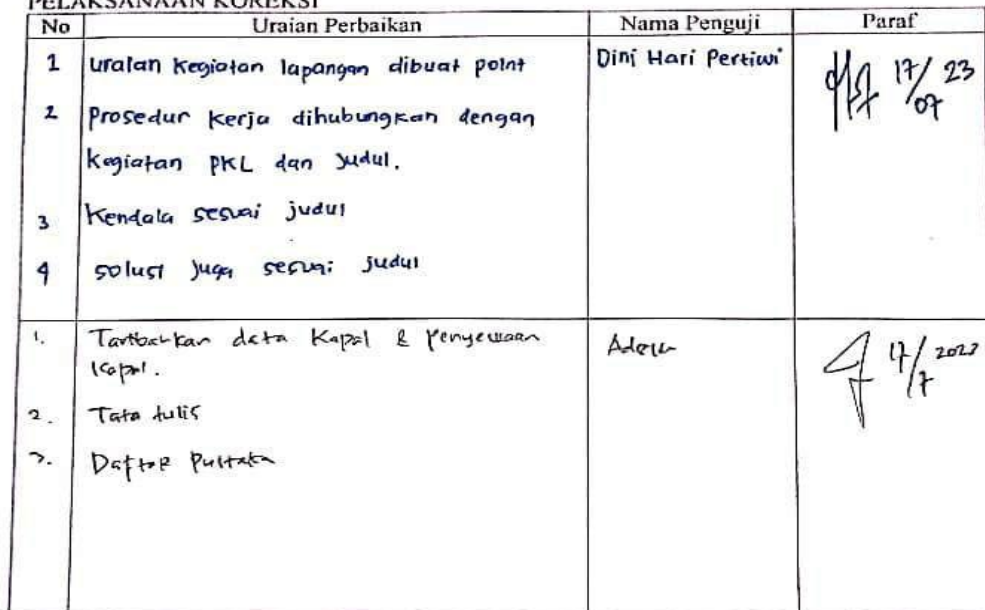 PELAKSANAAN KOREKSI
No Uraian Perbaikan Nama Penguji Paraf
1 Uraian Kegiatan lapangan dibuat point Dini Hari Pertiwi
17/07 23
2 Prosedur Kerja dihubungkan dengan
Kegiatan PKL dan Judul.
3 Kendala sesuai judul
4 solusi juga sesuai judul
1. Tambahkan data Kapal & Penyewaan
Kapal.
17/7 2023
2. Tata tulis
3. Daftar Pustaka